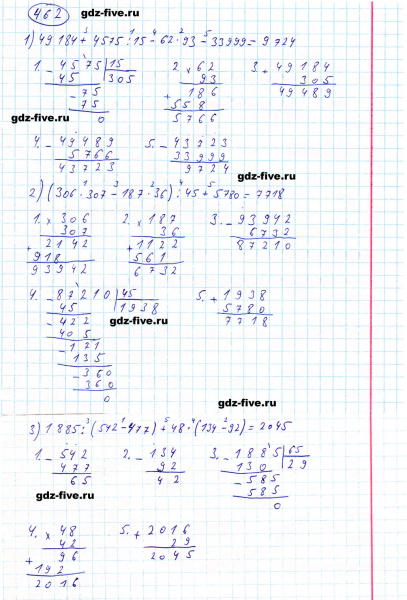 462 gdz-five.ru
1) 49 184 + 4575 : 15 - 62 · 93 - 33999 = 9 724
1. - 4575 | 15   2. × 62   3. + 49184
45   305   93   305
- 75   + 186   49489
75   558
0   5766
gdz-five.ru
4. - 49489   5. - 43723
5766   33999
43723   9724
gdz-five.ru
2) (306 · 307 - 187 · 36) : 45 + 5780 = 7718
1. × 306   2. × 187   3. - 93942
307   36   6732
+ 2142   + 1122   87210
918   561
93942   6732
gdz-five.ru
4. - 87210 | 45   5. + 1938
45   1938   5780
- 422   7718
405
gdz-five.ru
- 171
135
- 360
360
0
3) 1885 : (542 - 477) + 48 · (134 - 92) = 2045
1. - 542   2. - 134   3. - 1885 | 65
477   92   130   29
65   42   - 585
585
0
gdz-five.ru
4. × 48   5. + 2016
42   29
+ 96   2045
192
2016
gdz-five.ru